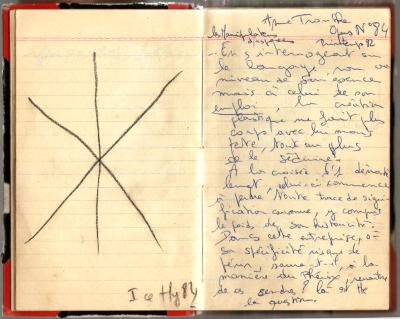 Opus N°84
Printemps 82
En s'interrogeant sur
le langage, non au
niveau de son essence
mais à celui de son
emploi, la création
plastique ne fait plus
corps avec lui mais
tente, tout au plus
de le séduire.
A la croisée d'1
celui-ci commence
à perdre toute trace de signi-
fication connue, y compris
le poids de son historicité.
Dans cette entreprise, où
sa spécificité risque de
périr, saura-t-il, à la
manière du Phénix, renaître
de ces cendres ? là est
la question.